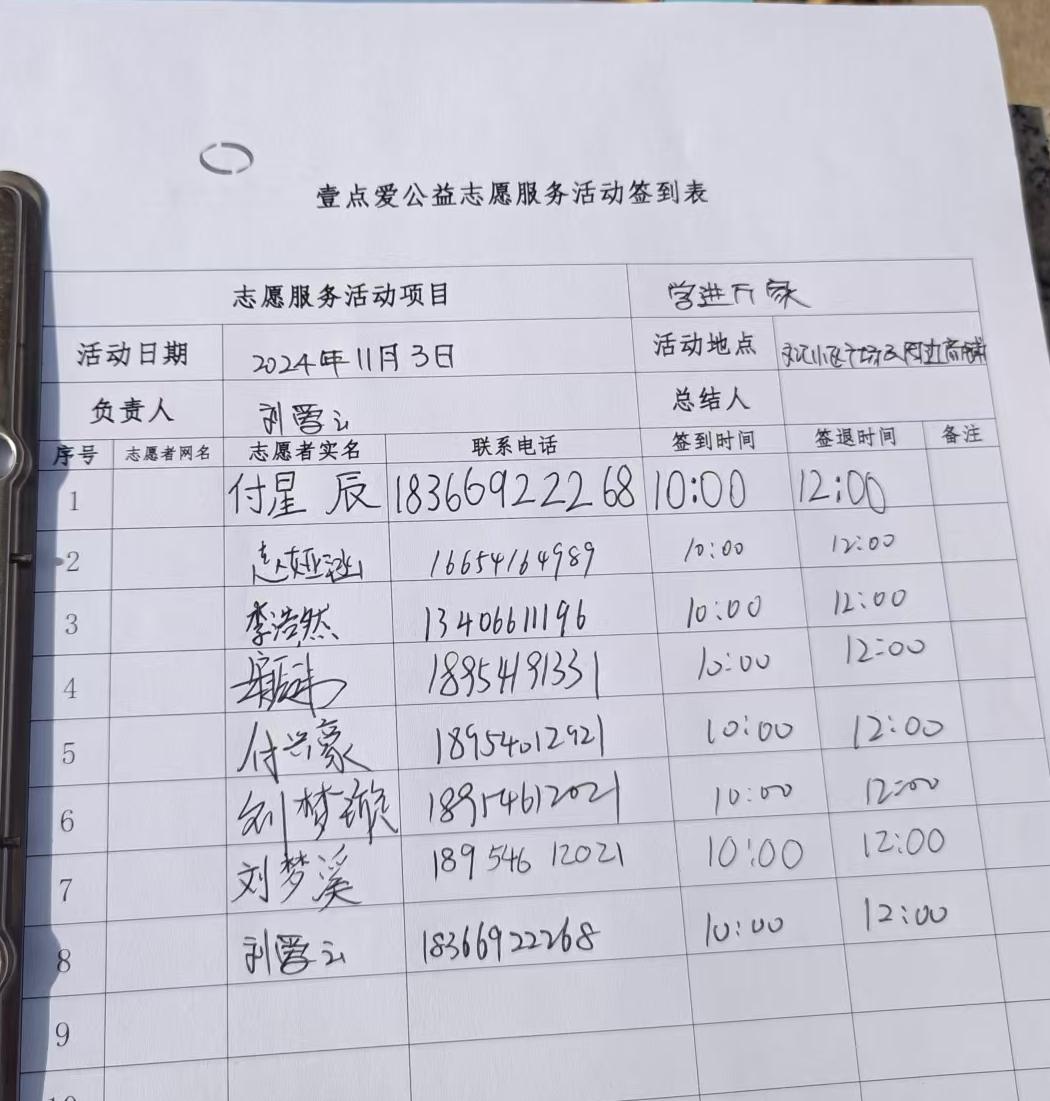 壹点爱公益志愿服务活动签到表
志愿服务活动项目 学进万家
活动日期 2024年11月3日 活动地点 小区广场及周边商铺
负责人 刘爱云 总结人
序号 志愿者网名 志愿者实名 联系电话 签到时间 签退时间 备注
1 付星辰 18366922268 10:00 12:00
2 16654164989 10:00 12:00
3 李浩然 13406611196 10:00 12:00
4 18954191331 10:00 12:00
5 付兴豪 18954012921 10:00 12:00
6 刘梦璇 18954612021 10:00 12:00
7 刘梦溪 189 546 12021 10:00 12:00
8 刘爱云 18366922268 10:00 12:00
9
10